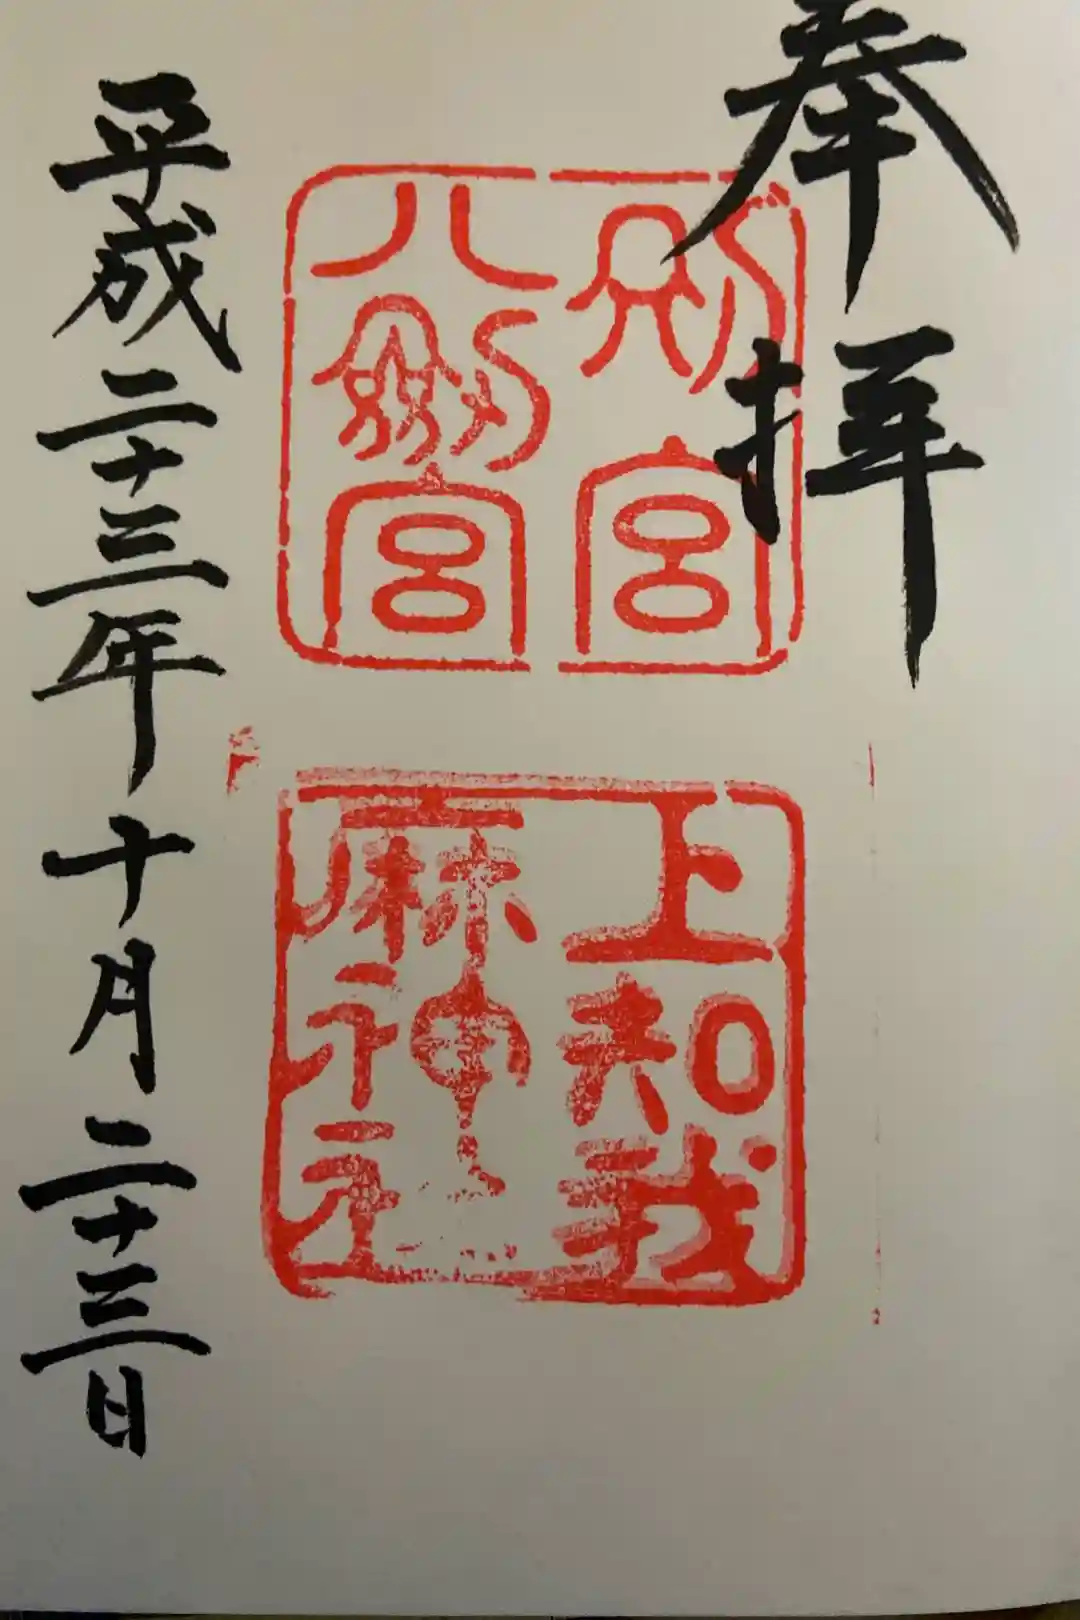 奉拝
別宮
八劔宮
上知我
麻神社
平成二十三年十月二十三日